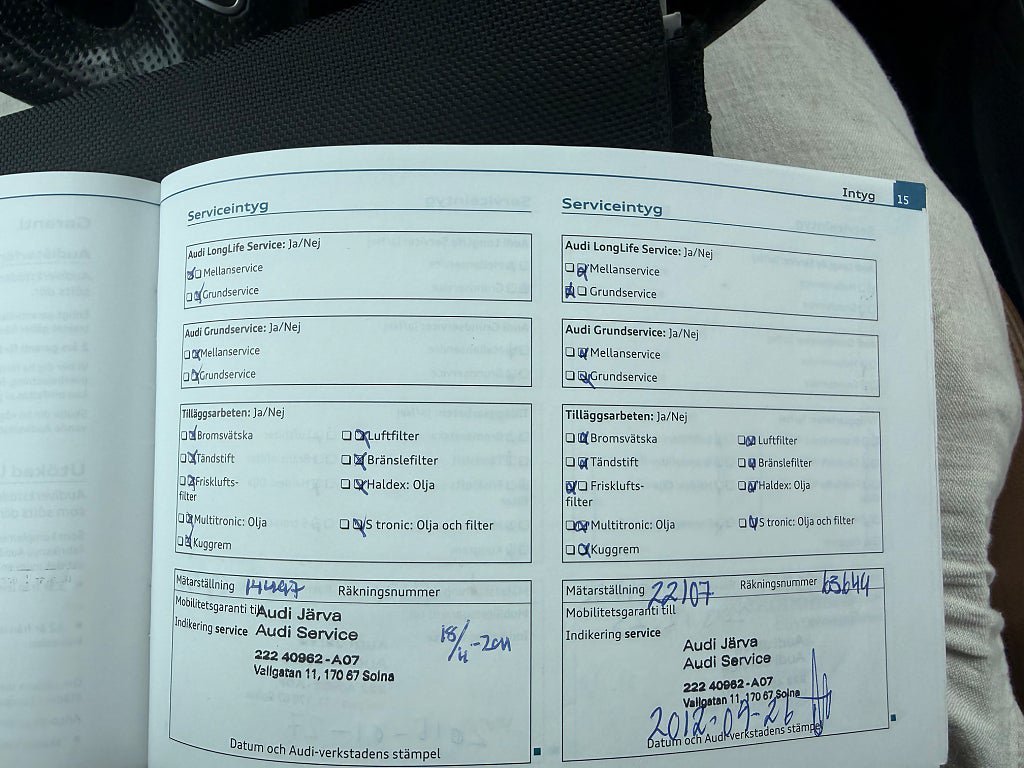 Intyg 15
Serviceintyg
Audi LongLife Service: Ja/Nej
Mellanservice
Grundservice
Audi Grundservice: Ja/Nej
Mellanservice
Grundservice
Tilläggsarbeten: Ja/Nej
Bromsvätska Luftfilter
Tändstift Bränslefilter
Frisklufts- Haldex: Olja
filter
Multitronic: Olja S tronic: Olja och filter
Kuggrem
Mätarställning 14497 Räkningsnummer
Mobilitetsgaranti till
Audi Järva
Indikering service Audi Service
222 40962-A07
Vallgatan 11, 170 67 Solna
18/11-2011
Datum och Audi-verkstadens stämpel
Serviceintyg
Audi LongLife Service: Ja/Nej
Mellanservice
Grundservice
Audi Grundservice: Ja/Nej
Mellanservice
Grundservice
Tilläggsarbeten: Ja/Nej
Bromsvätska Luftfilter
Tändstift Bränslefilter
Frisklufts- Haldex: Olja
filter
Multitronic: Olja S tronic: Olja och filter
Kuggrem
Mätarställning 22107 Räkningsnummer 63644
Mobilitetsgaranti till
Indikering service
Audi Järva
Audi Service
222 40962-A07
Vallgatan 11, 170 67 Solna
2012-09-26
Datum och Audi-verkstadens stämpel